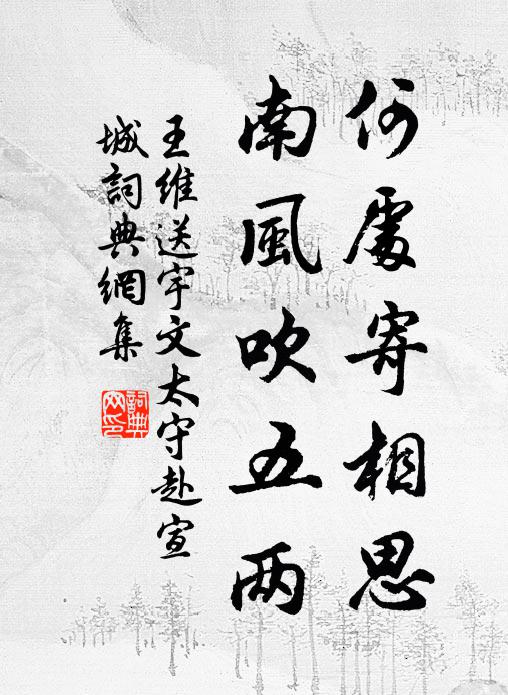 何處寄相思
南風吹五两
王維送宇文太守赴宣
城詞典網集
詞典
网印